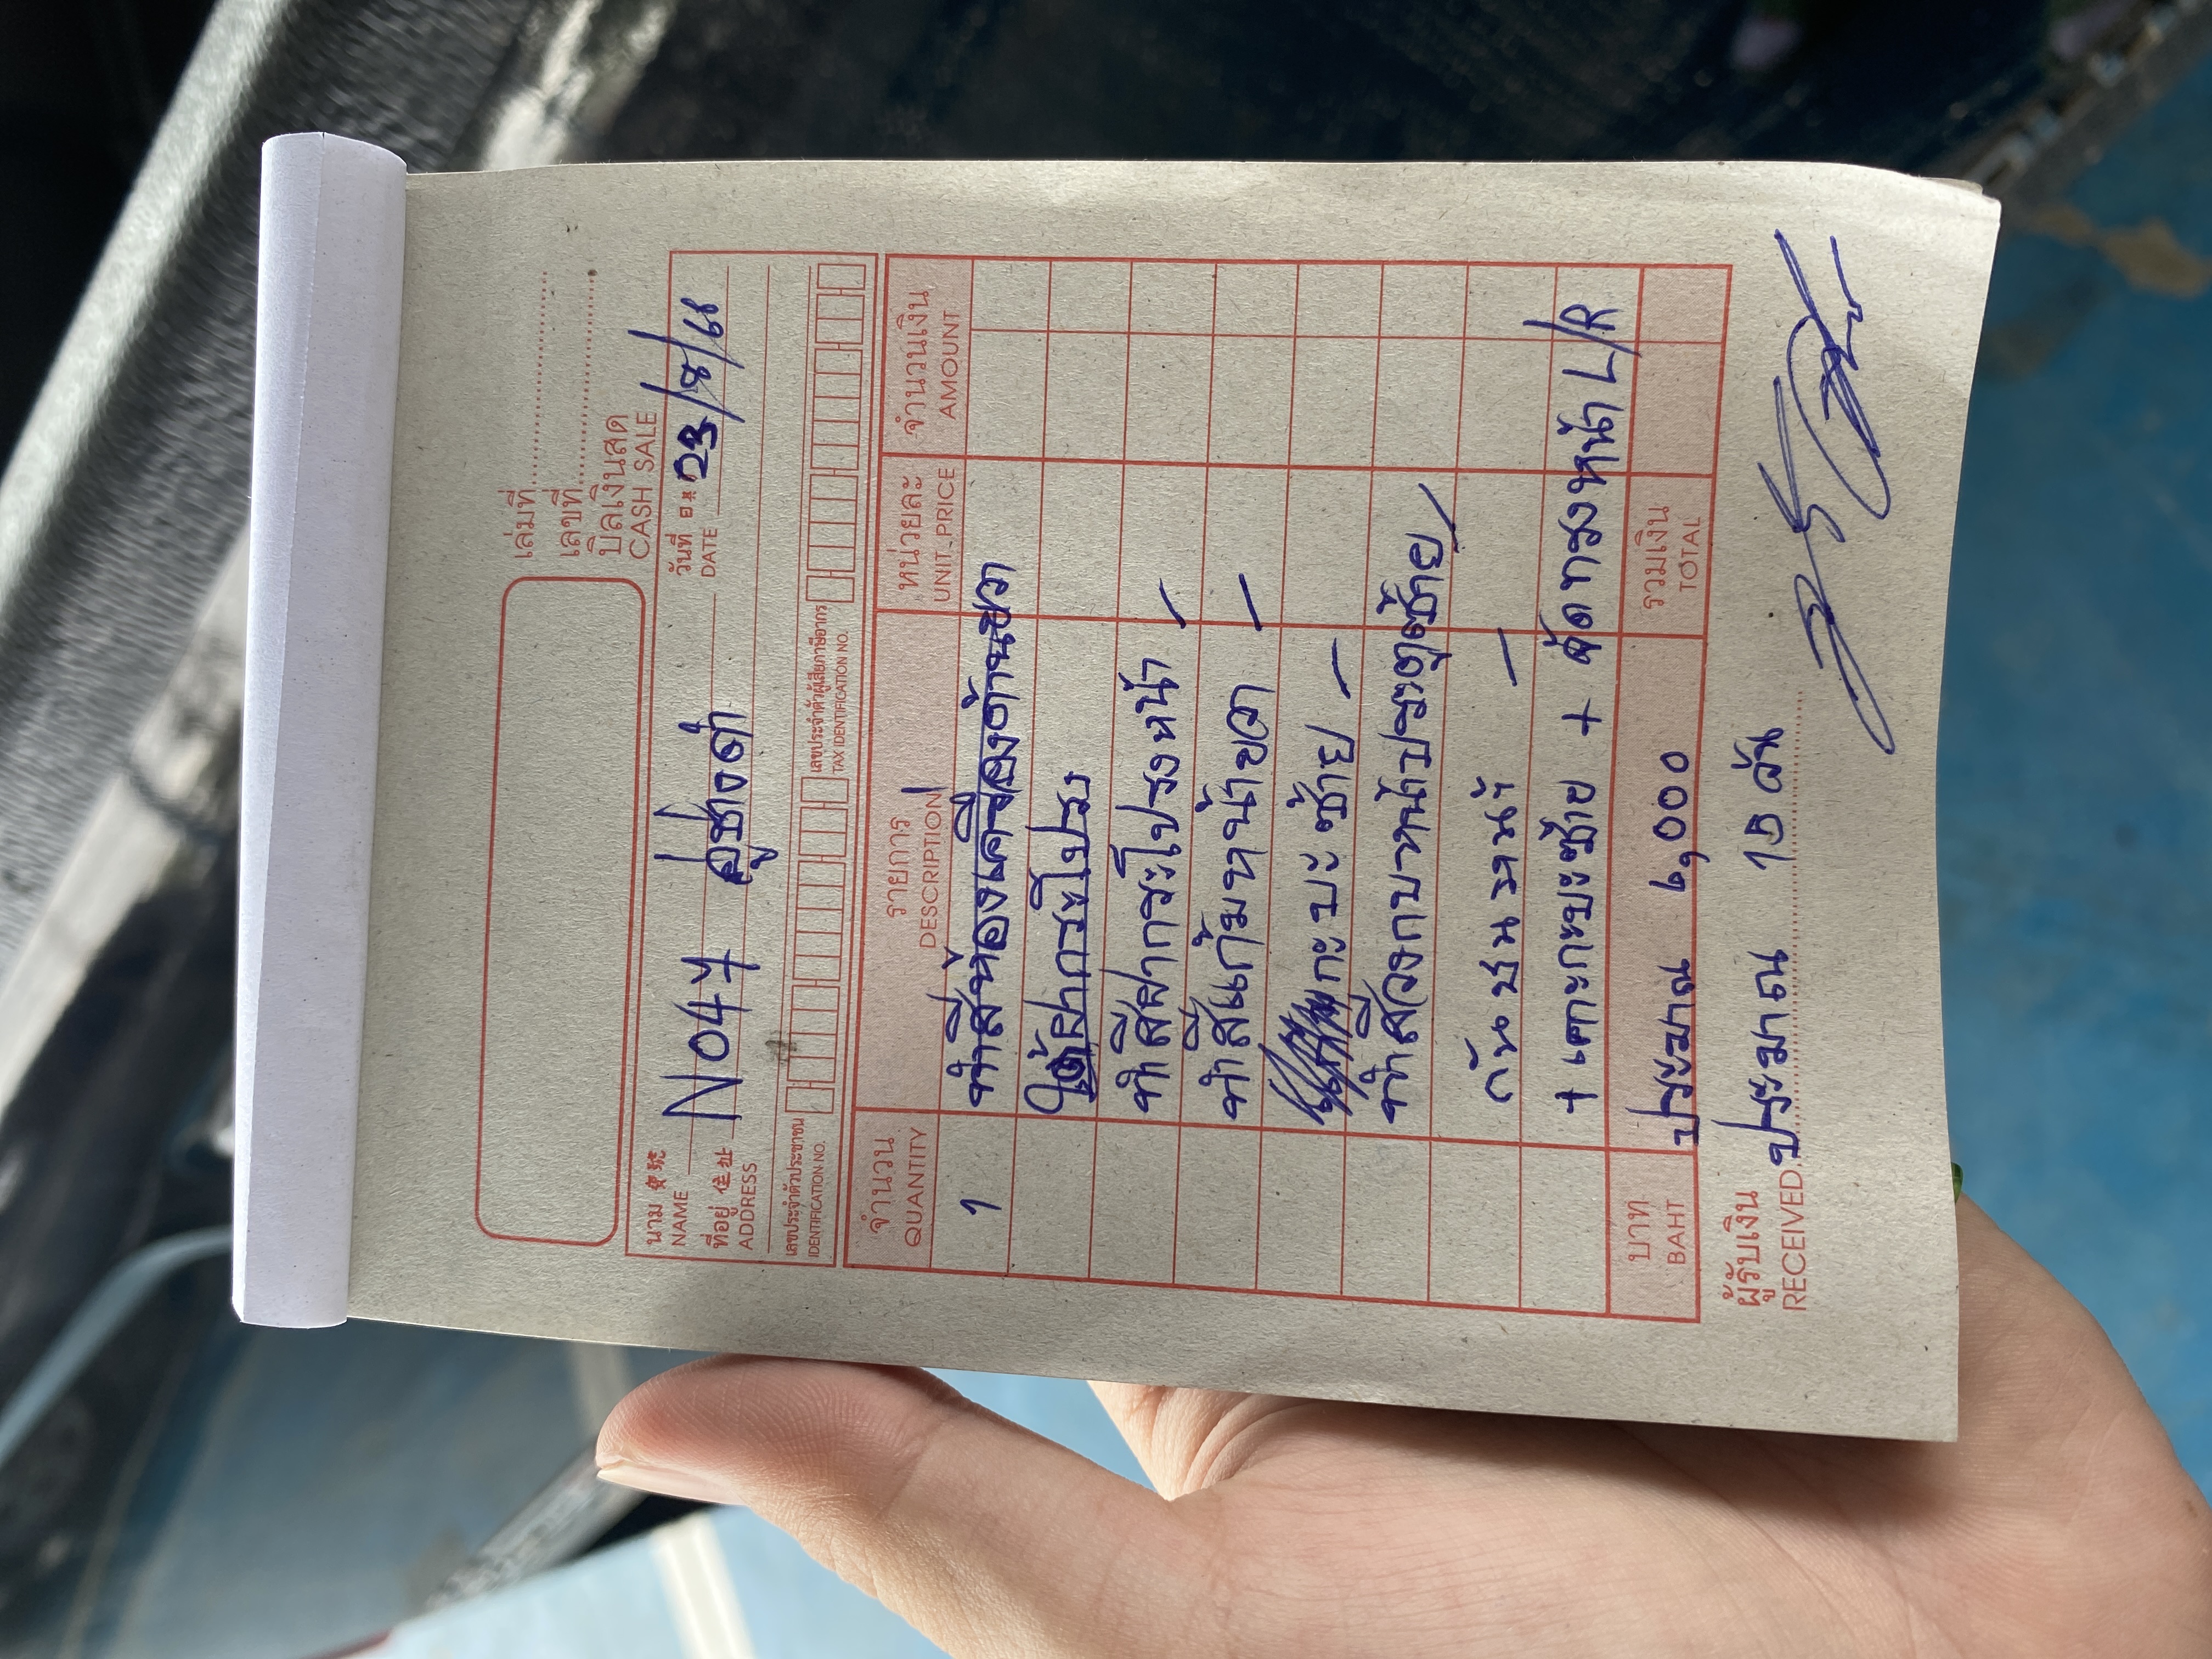 เล่มที่
เลขที่
บิลเงินสด
CASH SALE
นาม
NAME
N047
วันที่
DATE
23/8/68
ที่อยู่ 住址
ADDRESS
อู่ช่างดำ
เลขประจำตัวประชาชน
IDENTIFICATION NO.
เลขประจำตัวผู้เสียภาษีอากร
TAX IDENTIFICATION NO.
จำนวน รายการ หน่วยละ จำนวนเงิน
QUANTITY DESCRIPTION UNIT PRICE AMOUNT
1 ทำสีห้องเครื่องด้านขวา
ใต้ฝากระโปรง
ทำสีฝากระโปรงหน้า
ทำสีแก้มหน้าขวา
กะบะซ้าย
ทำสีวงกบาทหน้าประตูซ้าย
กันชนหน้า
+ เคาะกะบะซ้าย + ดัดทรงหน้า L/R
บาท ประมาณ 6,000 รวมเงิน
BAHT TOTAL
ผู้รับเงิน ประมาณ 15 วัน
RECEIVED